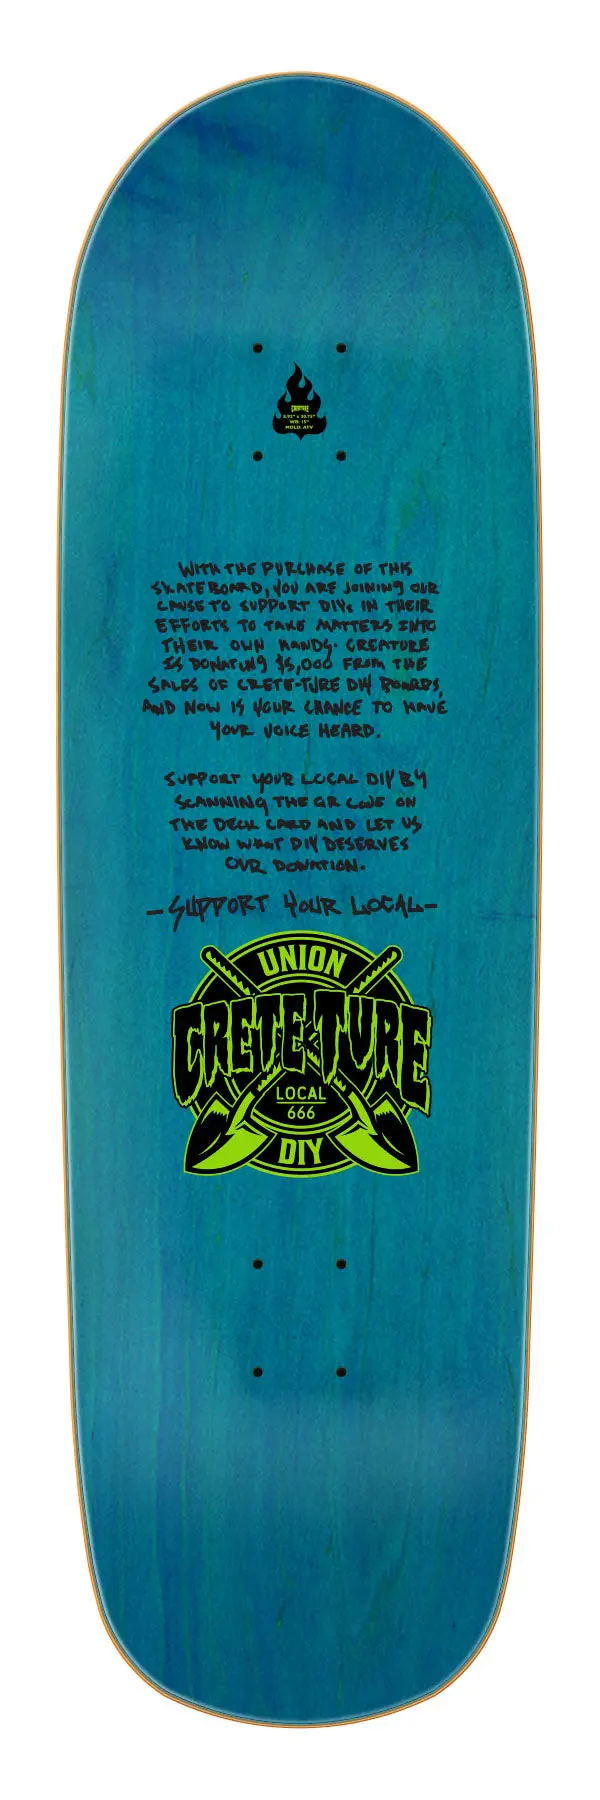 CREATURE
8.92" x 32.72"
WB: 15"
MOLD: ATV
WITH THE PURCHASE OF THIS
SKATEBOARD, YOU ARE JOINING OUR
CAUSE TO SUPPORT DIYs IN THEIR
EFFORTS TO TAKE MATTERS INTO
THEIR OWN HANDS. CREATURE
IS DONATING $5,000 FROM THE
SALES OF CRETE-TURE DIY BOARDS,
AND NOW IS YOUR CHANCE TO HAVE
YOUR VOICE HEARD.
SUPPORT YOUR LOCAL DIY BY
SCANNING THE QR CODE ON
THE DECK CARD AND LET US
KNOW WHAT DIY DESERVES
OUR DONATION.
-SUPPORT YOUR LOCAL-
UNION
CRETE-TURE
LOCAL
666
DIY